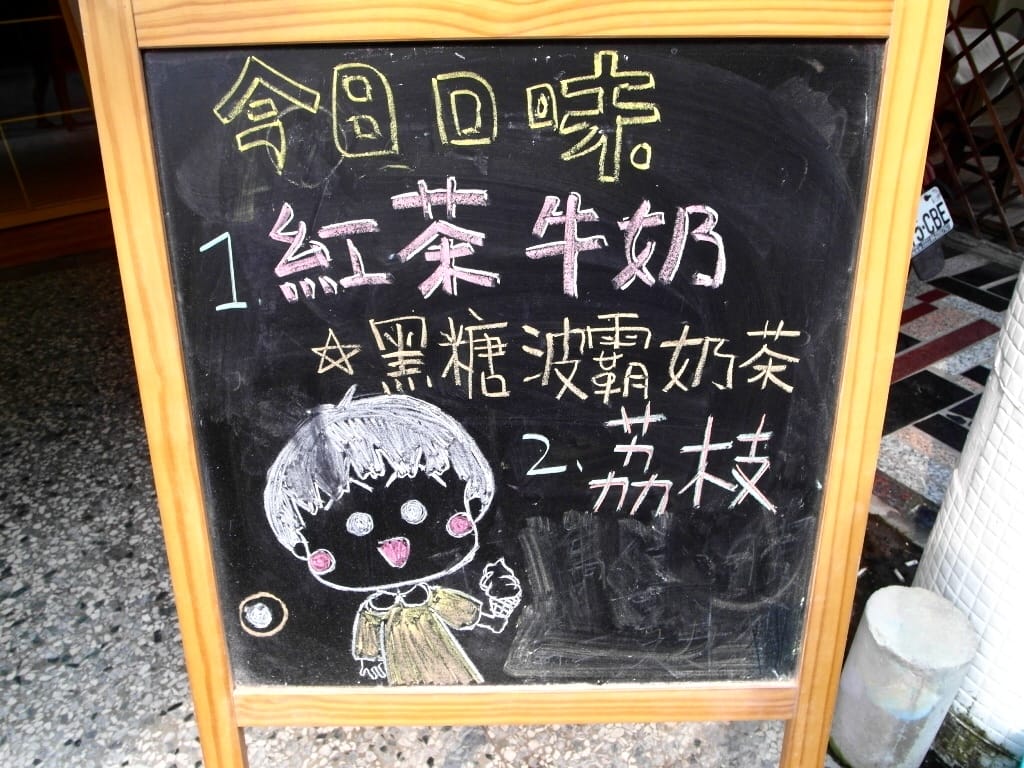 今週口味
1. 紅茶牛奶
☆黑糖波霸奶茶
2. 荔枝
5·CBE